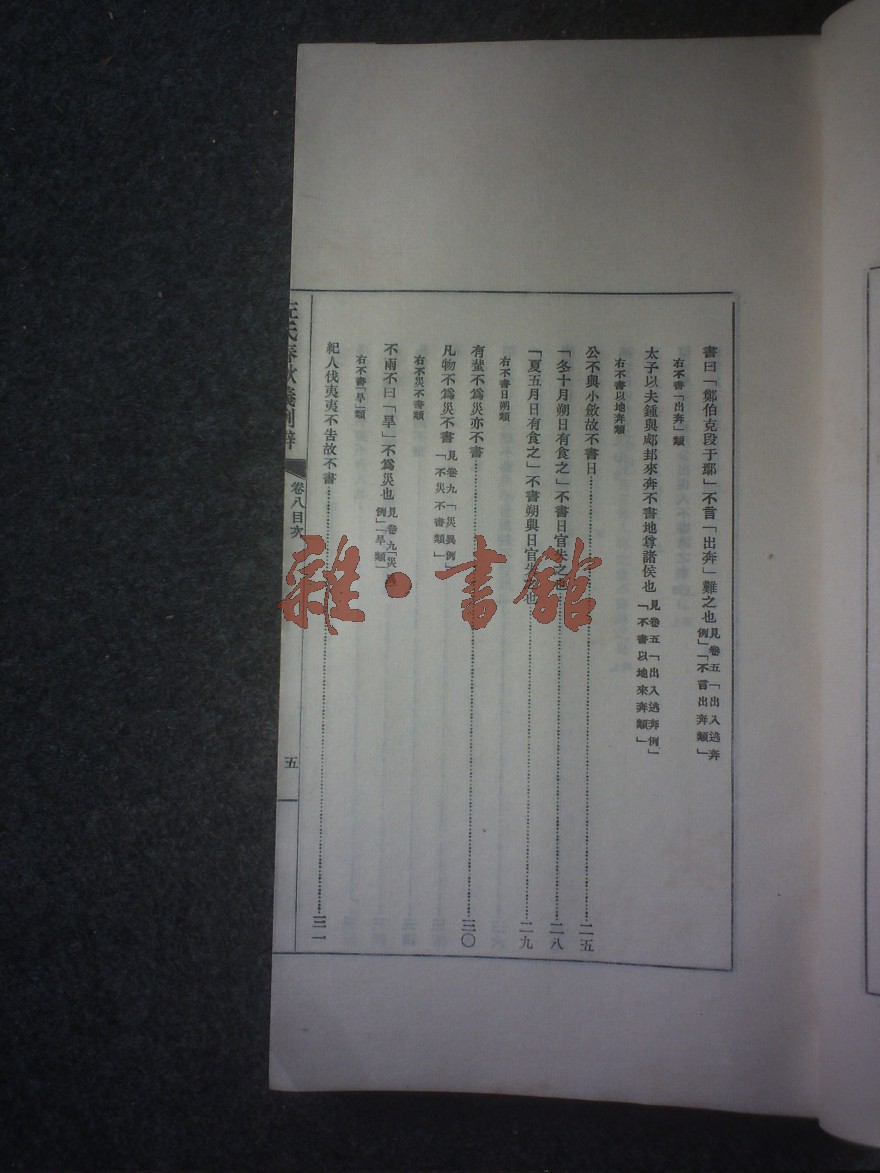 書曰「鄭伯克段于鄢」不言「出奔」難之也見卷五「出入逃奔例」「不言出奔類」
右不書「出奔」類
太子以夫鍾與郕邽來奔不書地尊諸侯也見卷五「出入逃奔例」「不書以地來奔類」
右不書以地奔類
公不與小斂故不書日二五
「冬十月朔日有食之」不書日官失之也二八
「夏五月日有食之」不書朔與日官失之也二九
右不書日朔類
有蜚不爲災亦不書三〇
凡物不爲災不書見卷九「災異例」「不災不書類」
右不災不書類
不雨不曰「旱」不爲災也見卷九「災異例」「旱類」
右不書「旱」類
紀人伐夷夷不告故不書三一
左氏春秋義例辨
卷八目次
五
雜·書館